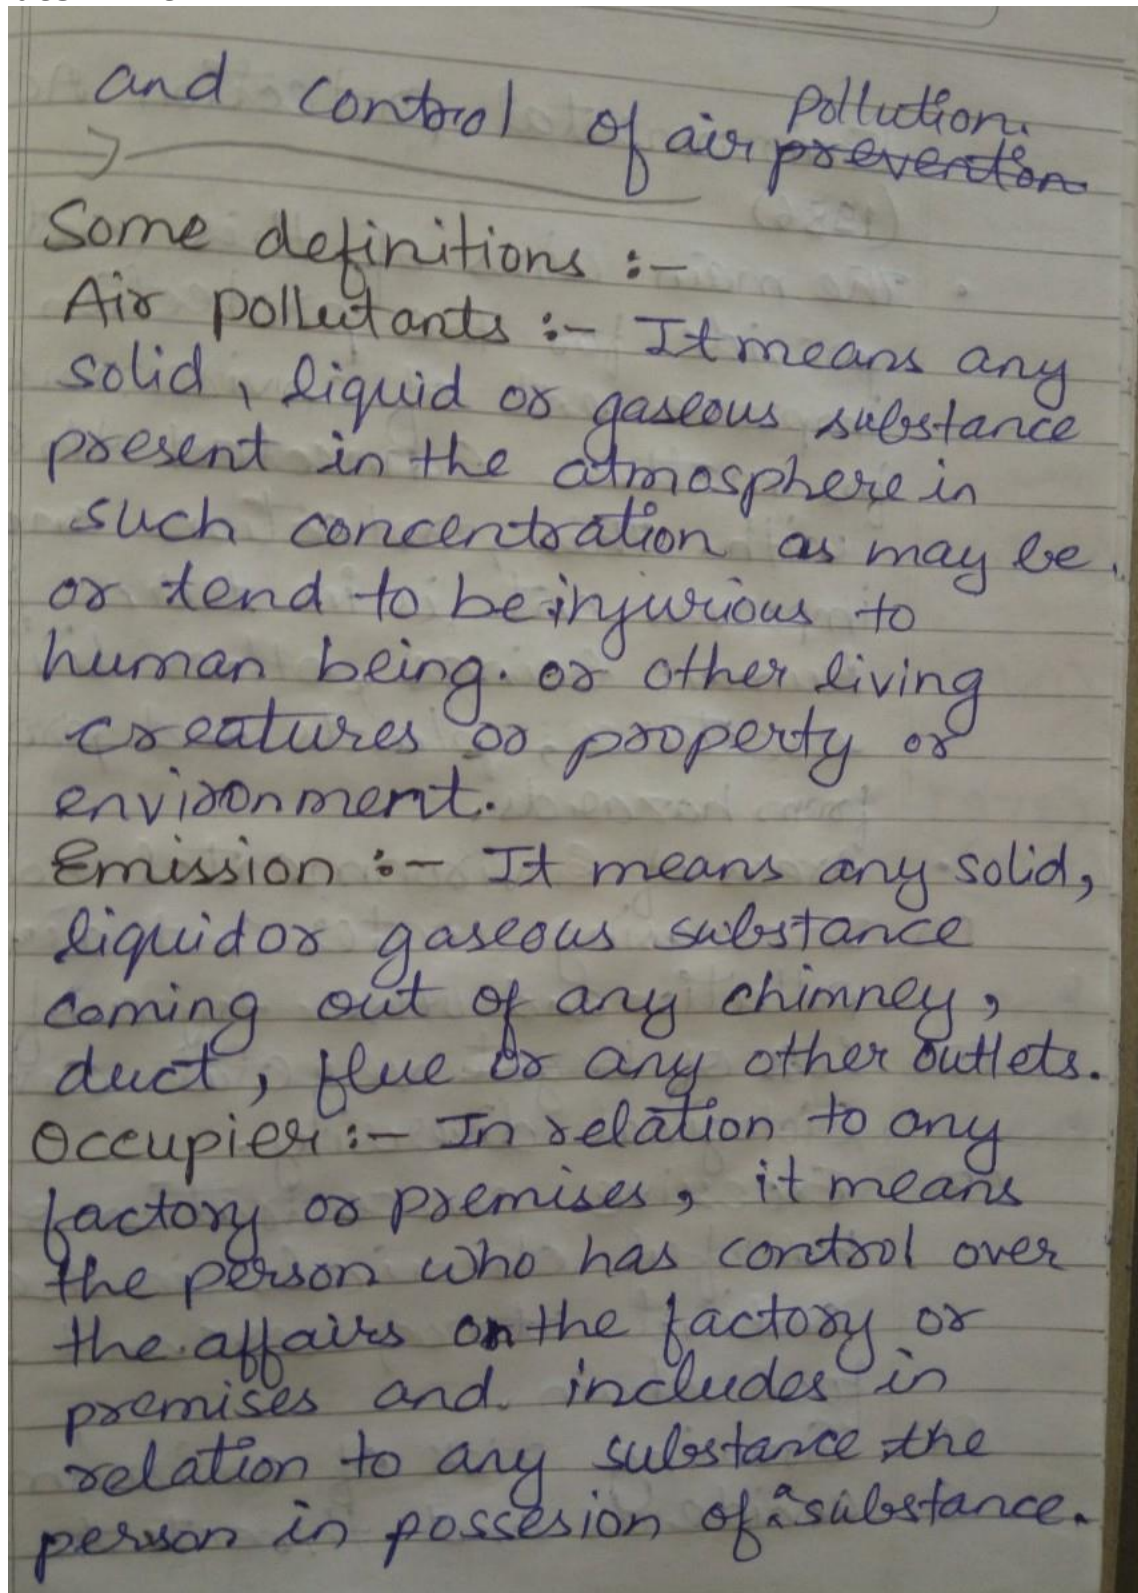 and control of air pollution. prevention
Some definitions :-
Air pollutants :- It means any
solid, liquid or gaseous substance
present in the atmosphere in
such concentration as may be
or tend to be injurious to
human being. or other living
creatures or property or
environment.
Emission :- It means any solid,
liquid or gaseous substance
coming out of any chimney,
duct, flue or any other outlets.
Occupier :- In relation to any
factory or premises, it means
the person who has control over
the affairs on the factory or
premises and includes in
relation to any substance the
person in possesion of a substance.